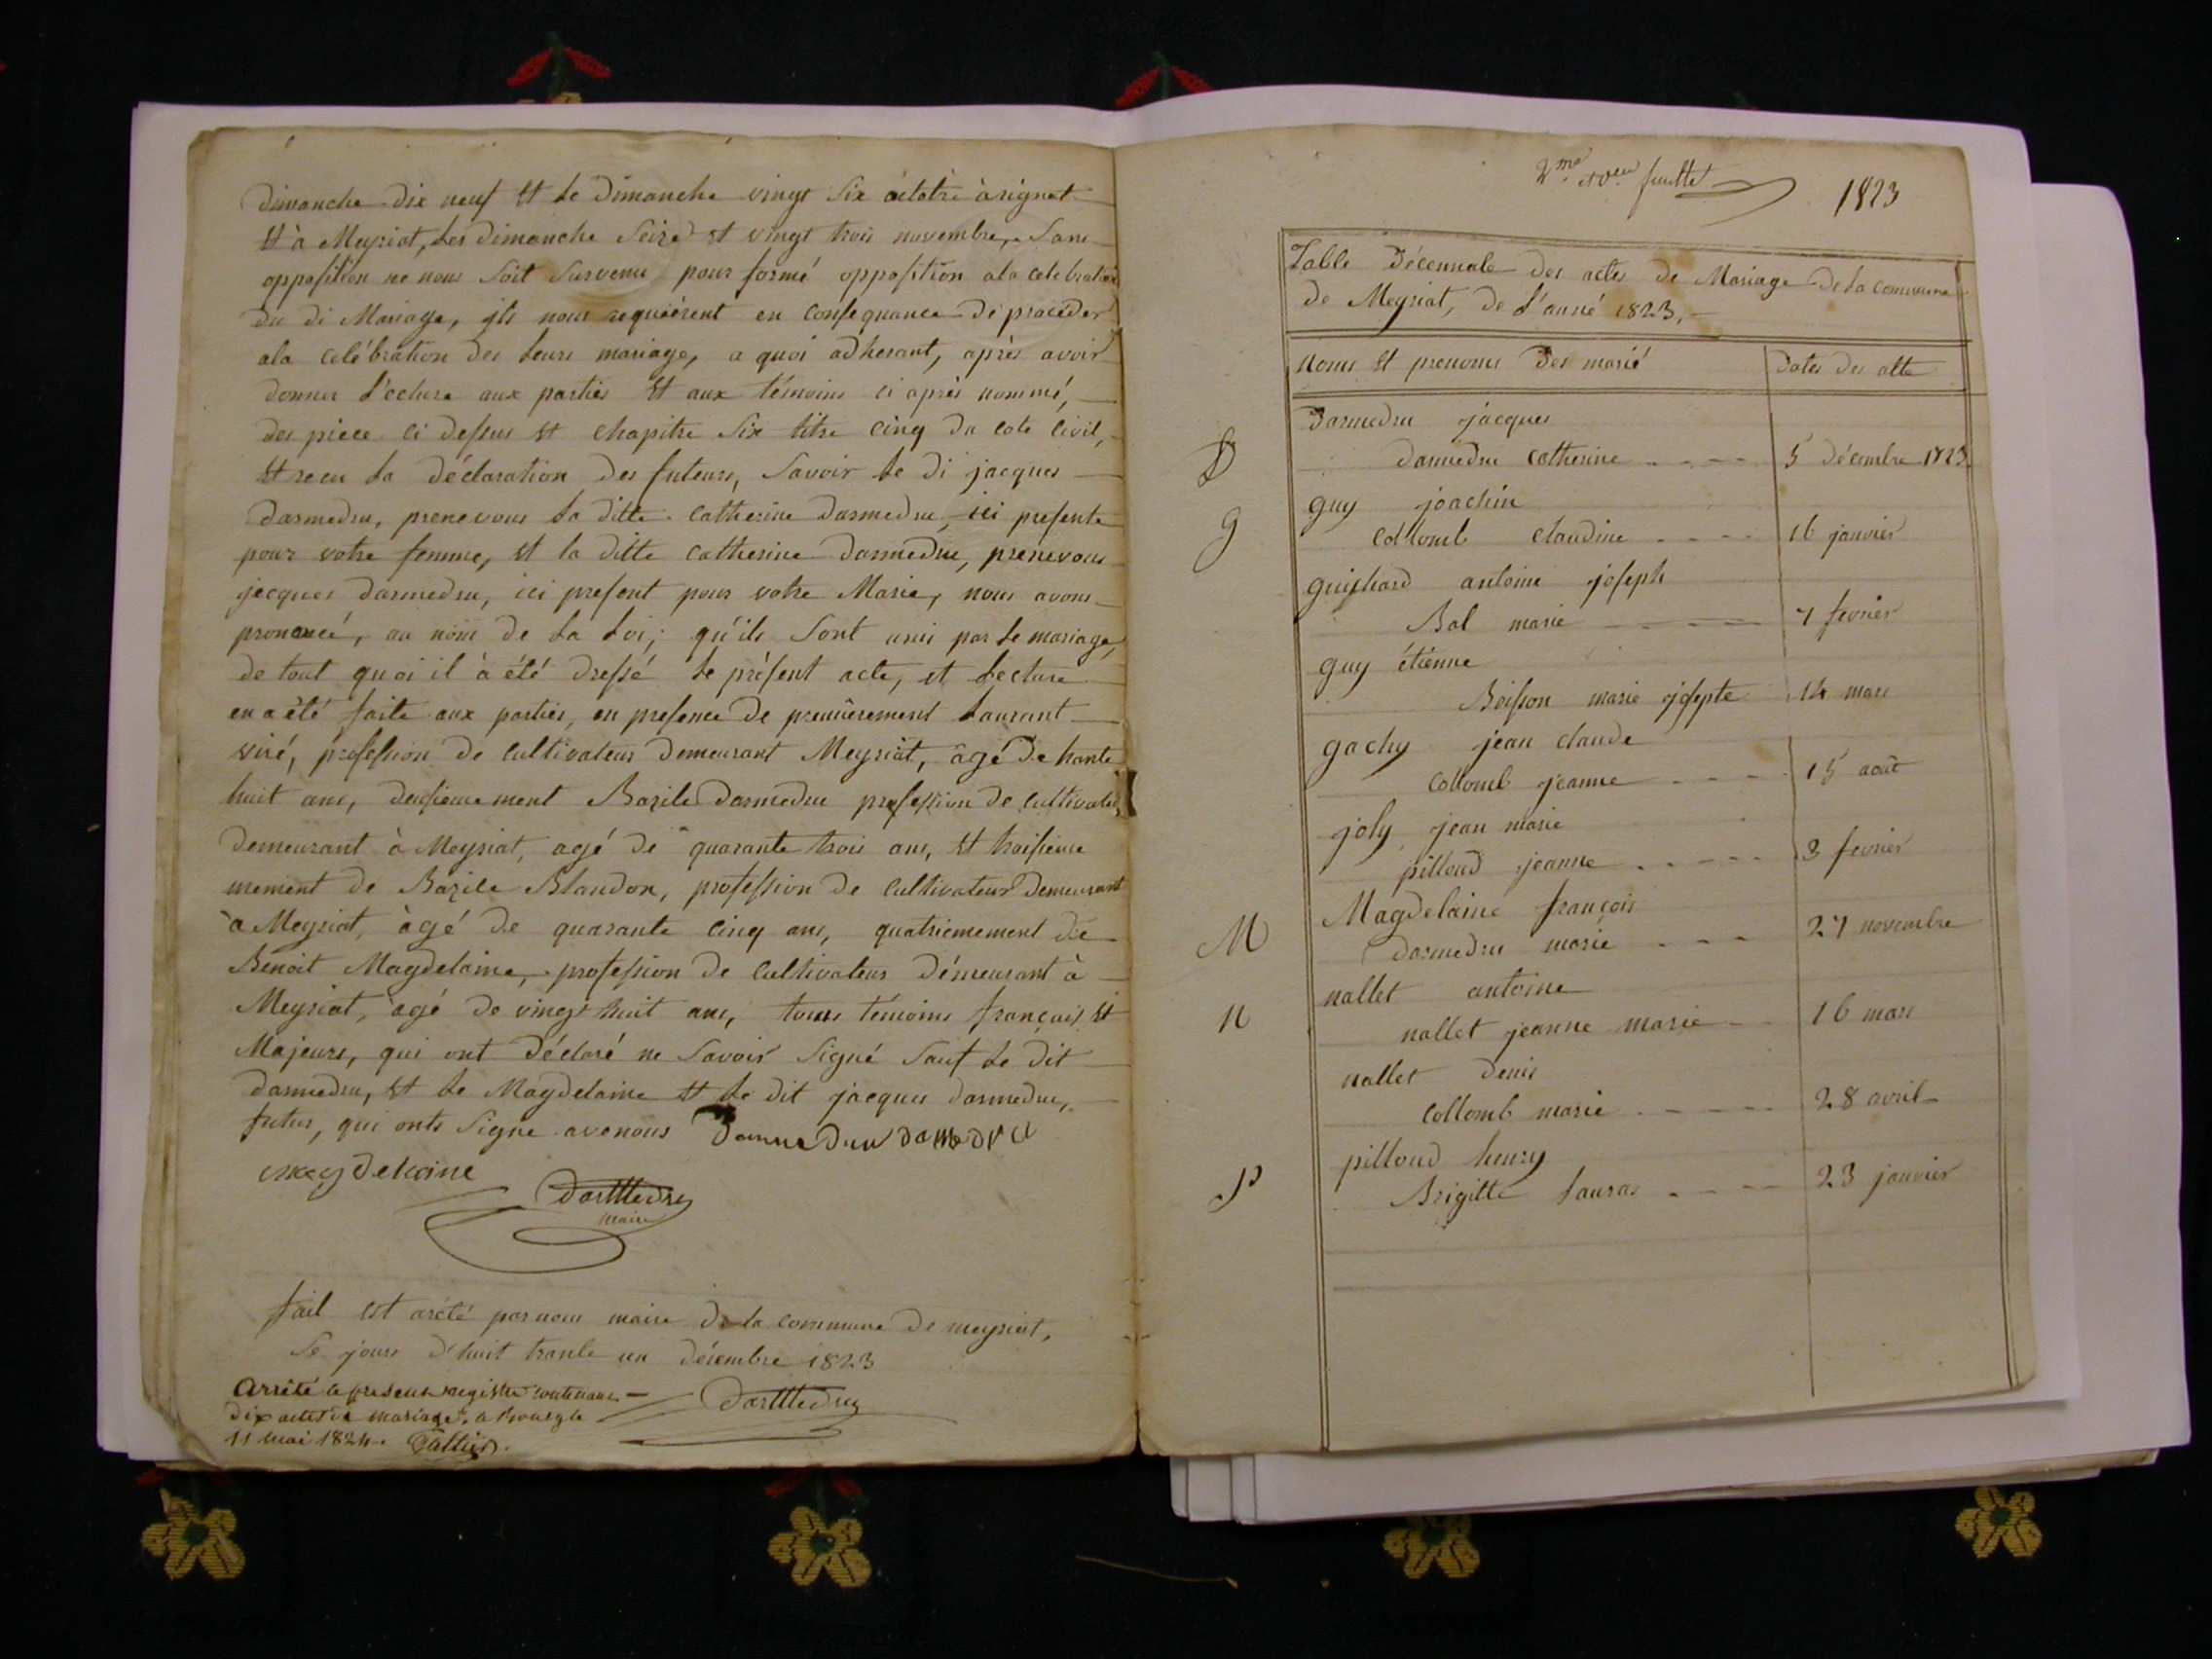 dimanche dix neuf et le dimanche vingt six octobre à signat
et à Meyriat, les dimanche seize et vingt trois novembre, sans
opposition ne nous soit survenu pour formé opposition a la celebration
du di Mariage, ils nous requièrent en consequance de proceder
a la celébration des leurs mariage, a quoi adherant, après avoir
donner l'ecture aux parties et aux témoins ci après nommé,
des piece ci dessus et chapitre six titre cinq du code civil,
et recu la déclaration des futeurs, savoir le di jacques
darmedru, prenevous la ditte catherine darmedru, ici presente
pour votre femme, et la ditte catherine darmedru, prenevous
jacques darmedru, ici present pour votre Marie, nous avons
prononcé, au nom de la loi, qu'ils sont unis par le mariage,
de tout quoi il à été dressé le présent acte, et lecture
en a été faite aux parties, en presence de premièrement Laurant
viré, profession de cultivateur demeurant Meyriat, âgé de trante
huit ans, deusiemement Bazile darmedru profession de cultivateur
demeurant à Meyriat, agé de quarante trois ans, et troisieme
mement de Bazile Blandon, profession de cultivateur demeurant
à Meyriat, àgé de quarante cinq ans, quatriemement de
Benoit Magdelaine, profession de cultivateur démeurant à
Meyriat, àgé de vingt huit ans, tous témoins français et
Majeurs, qui ont Déclaré ne savoir signé sauf le dit
darmedru, et le Magdelaine et le dit jacques darmedru,
futur, qui onts signe avenous Darmedru damedru
magdelaine
Darmedru
maire
fait est arété par nous maire de la commune de meyriat,
le jours d'huit trante un décembre 1823
Arrêté le présent registre contenant
dix actes de mariage, a Bourg le
11 mai 1824.
Darmedru
2me feuillet
1823
Table Décennale des actes de Mariage de la commune
de Meyriat, de l'anné 1823,
Noms et prenoms des marié
Dates des atte
Darmedru jacques
D
darmedru catherine
5 décembre 1823
guy joachin
g
collomb claudine
16 janvier
guichard antoine joseph
Bal marie
7 fevrier
guy étienne
Boisson marie josepte
14 mars
gachy jean claude
collomb jeanne
15 août
joly jean marie
pilloud jeanne
3 fevrier
Magdelaine françois
M
darmedru marie
27 novembre
nallet antoine
N
nallet jeanne marie
16 mars
nallet denis
collomb marie
28 avril
pilloud henry
P
Brigitte Lauras
23 janvier